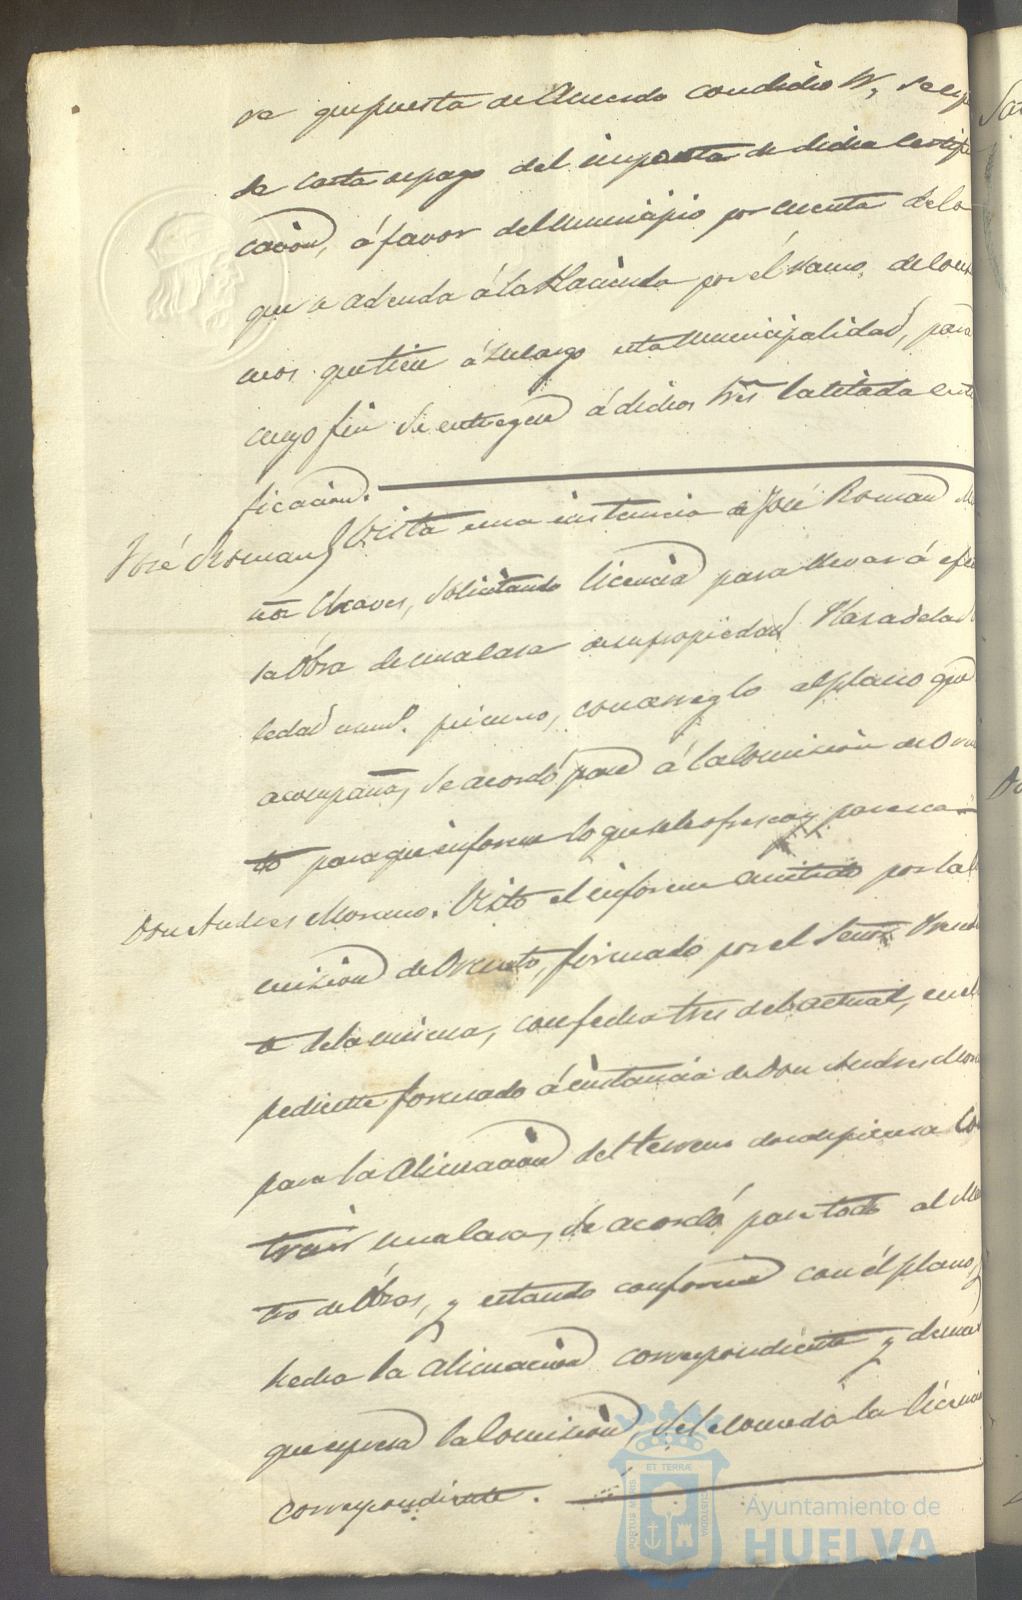 se carta de pago del importe de dicha certifi
cacion, á favor del Municipio por cuenta de lo
que se adeuda á la Hacienda por el ramo de consu
mos que tiene á su cargo esta Municipalidad, para
cuyo fin se entregue á dichos Sres la citada certi
ficacion.
José Roman Vista una instancia de José Roman
Chaves, solicitando licencia para llevar á efec
la Obra de una casa de su propiedad Plaza de la So
ledad num.º primero, con arreglo al plano que
acompaña, se acordó pase á la Comision de Orna
to para que informe lo que se le ofrezca y parezca
Don Andres Moreno. Visto el informe emitido por la Co
mision de Ornato, firmado por el Señor
de la misma, con fecha tres del actual, en el
pediente formado á instancia de Don Andres More
para la alineacion del terreno donde piensa Cons
truir una casa, se acordó pase todo al Maes
tro de Obras, y estando conforme con el plano,
hecha la alineacion correspondiente y demas
que espresa la Comision, se le conceda la licencia
correspondiente.
ET TERRÆ
PORTUS MARIS
CUSTODIA
Ayuntamiento de
HUELVA